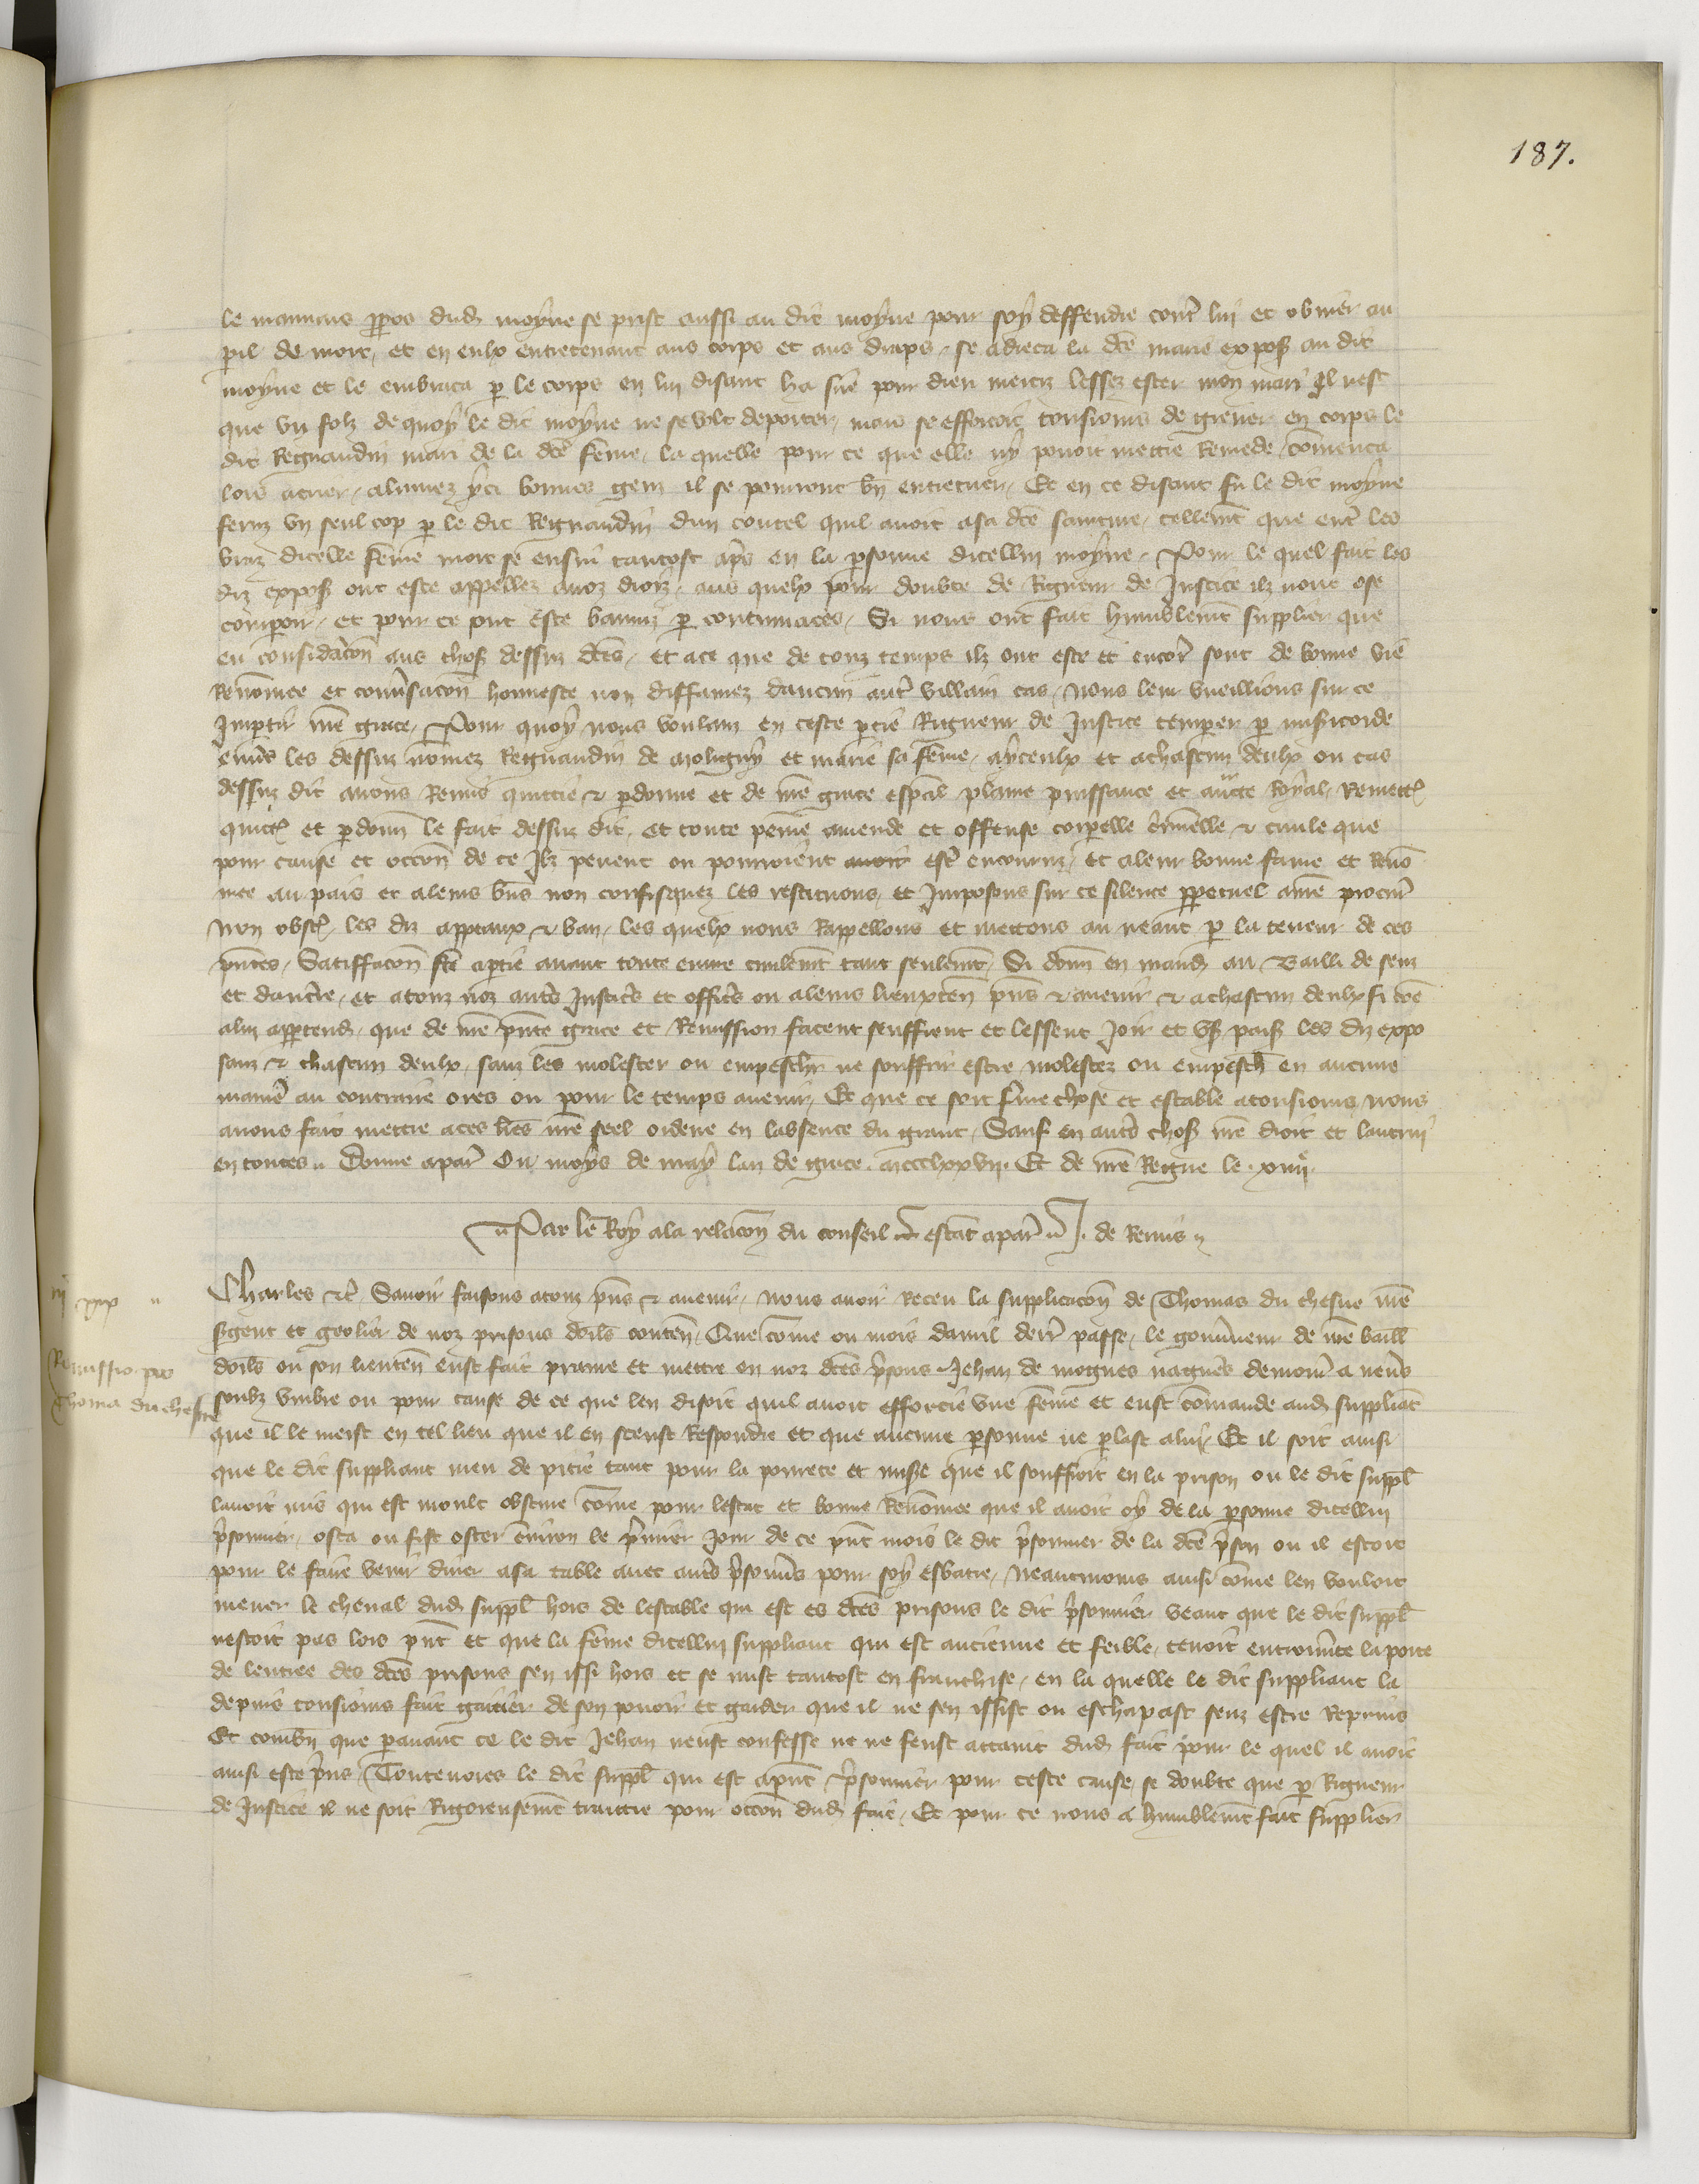 187.
le mauvais ꝓpos dud moyne se prist aussi au dit moyne pour soy deffendre cont̃ lui et obvier au
ꝑil de mort, et en eulx entretenant aus corps et aus draps, se adreca la dc̃e marie expoſ au dit
moyne et le embraca ꝑ le corps en lui disant ha sire pour dieu merciz lessez ester mon mari Il nest
que un folz de quoy le dit moyne ne se volt deporter, mais se efforcoit tousiours de grever en corps le
dit Regnaudin mari de la dc̃e fẽme, la quelle pour ce que elle ny povoit mettre Remede, cõmenca
lors a crier, alumez yci bonnes genz il se pourront bñ entretuer, Et en ce disant fu le dit moyne
feruz un seul cop ꝑ le dit Regnaudin dun coutel quil avoit a sa dc̃e sainture, tellemt̃ que ent̃ les
braz dicelle fẽme mort se ensui tantost ap̃s en la ꝑsonne dicellui moyne, Pour le quel fait les
diz expoſ ont este appellez a noz droiz, aus quelx pour doubte de Rigueur de Justice ilz nont ose
cõmparoir, et pour ce ont este banniz ꝑ contumaces, Si nous ont fait humblemt̃ supplier que
eu considãcõn aus choſ dessuz dc̃es, et a ce que de touz temps ilz ont este et encor̃ sont de bonne vie
Renõmee et convsacõn honneste non diffamez daucun aut̃ villain cas, nous leur vueillions sur ce
Impt̃ir nr̃e grace, Pour quoy nous voulans en ceste ꝑtie Rigueur de Justice temper ꝑ misericorde
envs les dessuz nõmez Regnaudin de moligny et marie sa fẽme, a yceulx et a chascun deulx ou cas
dessuz dit avons Remis quictie & ꝑdonne et de nr̃e grace esp̃al plaine puissance et auct̃e Royal, Remett̃
quict̃ et ꝑdonñ le fait dessuz dit, et toute peine amende et offense corporelle criminelle & civile que
pour cause et occõn de ce Ilz pevent ou pourroient avoir est̃ encouruz, et a leur bonne fame et Renõ
mee au pais et a leurs bñs non confisquez les restituons, et Imposons sur ce silence ꝑpetuel a nr̃e procur̃
Non obst̃ les diz appeaux & ban, les quelx nous Rappellons et mettons au neant ꝑ la teneur de ces
pñtes, Satisfacõn fc̃e a ptie avant toute euvre civilemt̃ tant seulemt̃, Si donñ en mand au Bailli de senz
et daucerre, et a touz noz aut̃s Justic̃s et offic̃s ou a leurs lieuxteñ pñs & avenir & a chascun deulx si cõe
a lui apptend, que de nr̃e pñte grace et Remission facent seuffrent et lessent Joir et uſ paisſ les diz expo
sanz & chascun deulx, sanz les molester ou empeschr̃ ne souffrir estre molestez ou empesch̃ en aucune
manie au contraire ores ou pour le temps avenir, Et que ce soit ferme chose et estable a tousiours, nous
avons fait mettre a ces lr̃es nr̃e seel ordene en labsence du grant, Sauf en aut̃s choſ nr̃e droit et lautrui
en toutes. Donne a par̃ Ou moys de may lan de grace .mccclxxvii. Et de nr̃e Regne le .xiiiie.
Par le Roy a la relacõn du conseil estãt a par̃ J. de Remis
Charles &c̃ Savoir faisons a touz pñs & avenir, nous avoir Receu la supplicacõn de Thomas du chesne nr̃e
sgent et geolier de noz prisons dorl̃s conteñ, Que cõme ou mois davril derr̃ passe, le gouvneur de nr̃e baill̃
dorl̃s ou son lieuteñ eust fait prenre et mettre en noz dc̃es p̃sons Jehan de mognes nagueres demour̃ a nevs
soubz umbre ou pour cause de ce que len disoit quil avoit efforcie une fẽme et eust cõmande aud suppliãt
que il le meist en tel lieu que il en sceust Respondre et que aucune ꝑsonne ne ꝑlast a lui, Et il soit ainsi
que le dit suppliant meu de pitie tant pour la povrete et misẽ que il souffroit en la prison ou le dit suppl̃
lavoit mis qui est moult obscure cõme pour lestat et bonne Renõmee que il avoit oy de la ꝑsonne dicellui
p̃sonnier, osta ou fist oster environ le p̃mier jour de ce pñt mois le dit p̃sonnier de la dc̃e p̃son ou il estoit
pour le faire venir diner a sa table avec aut̃s p̃sonniers pour soy esbatre, Neantmoins ainsi cõme len vouloit
mener le cheval dud suppl̃ hors de lestable qui est es dc̃es prisons le dit p̃sonnier veant que le dit suppl̃
nestoit pas lors pñt et que la fẽme dicellui suppliant qui est ancienne et feible, tenoit entrouverte la porte
de lentree des dc̃es prisons sen issi hors et se mist tantost en franchise, en la quelle le dit suppliant la
depuis tousiours fait gaitier de son povoir et garder que il ne sen issist ou eschapast senz estre Reprins
Et combñ que ꝑavant ce le dit Jehan neust confesse ne ne feust attaint dud fait pour le quel il avoit
ainsi este p̃ns, Toutevoies le dit suppl̃ qui est apñt p̃sonnier pour ceste cause, se doubte que ꝑ Rigueur
de Justice il ne soit Rigoreusemt̃ traittie pour occõn dud fait, Et pour ce nous a humblemt̃ fait supplier
Remissio pro
Thoma du chesne